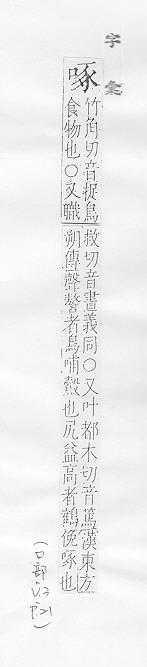 字彙
啄
竹角切音捉鳥
食物也○又職
救切音晝義同○又叶都木切音篤漢東方
朔傳聲謷者鳥哺鷇也尻益高者鶴俛啄也
(口部, v.3 p.21)